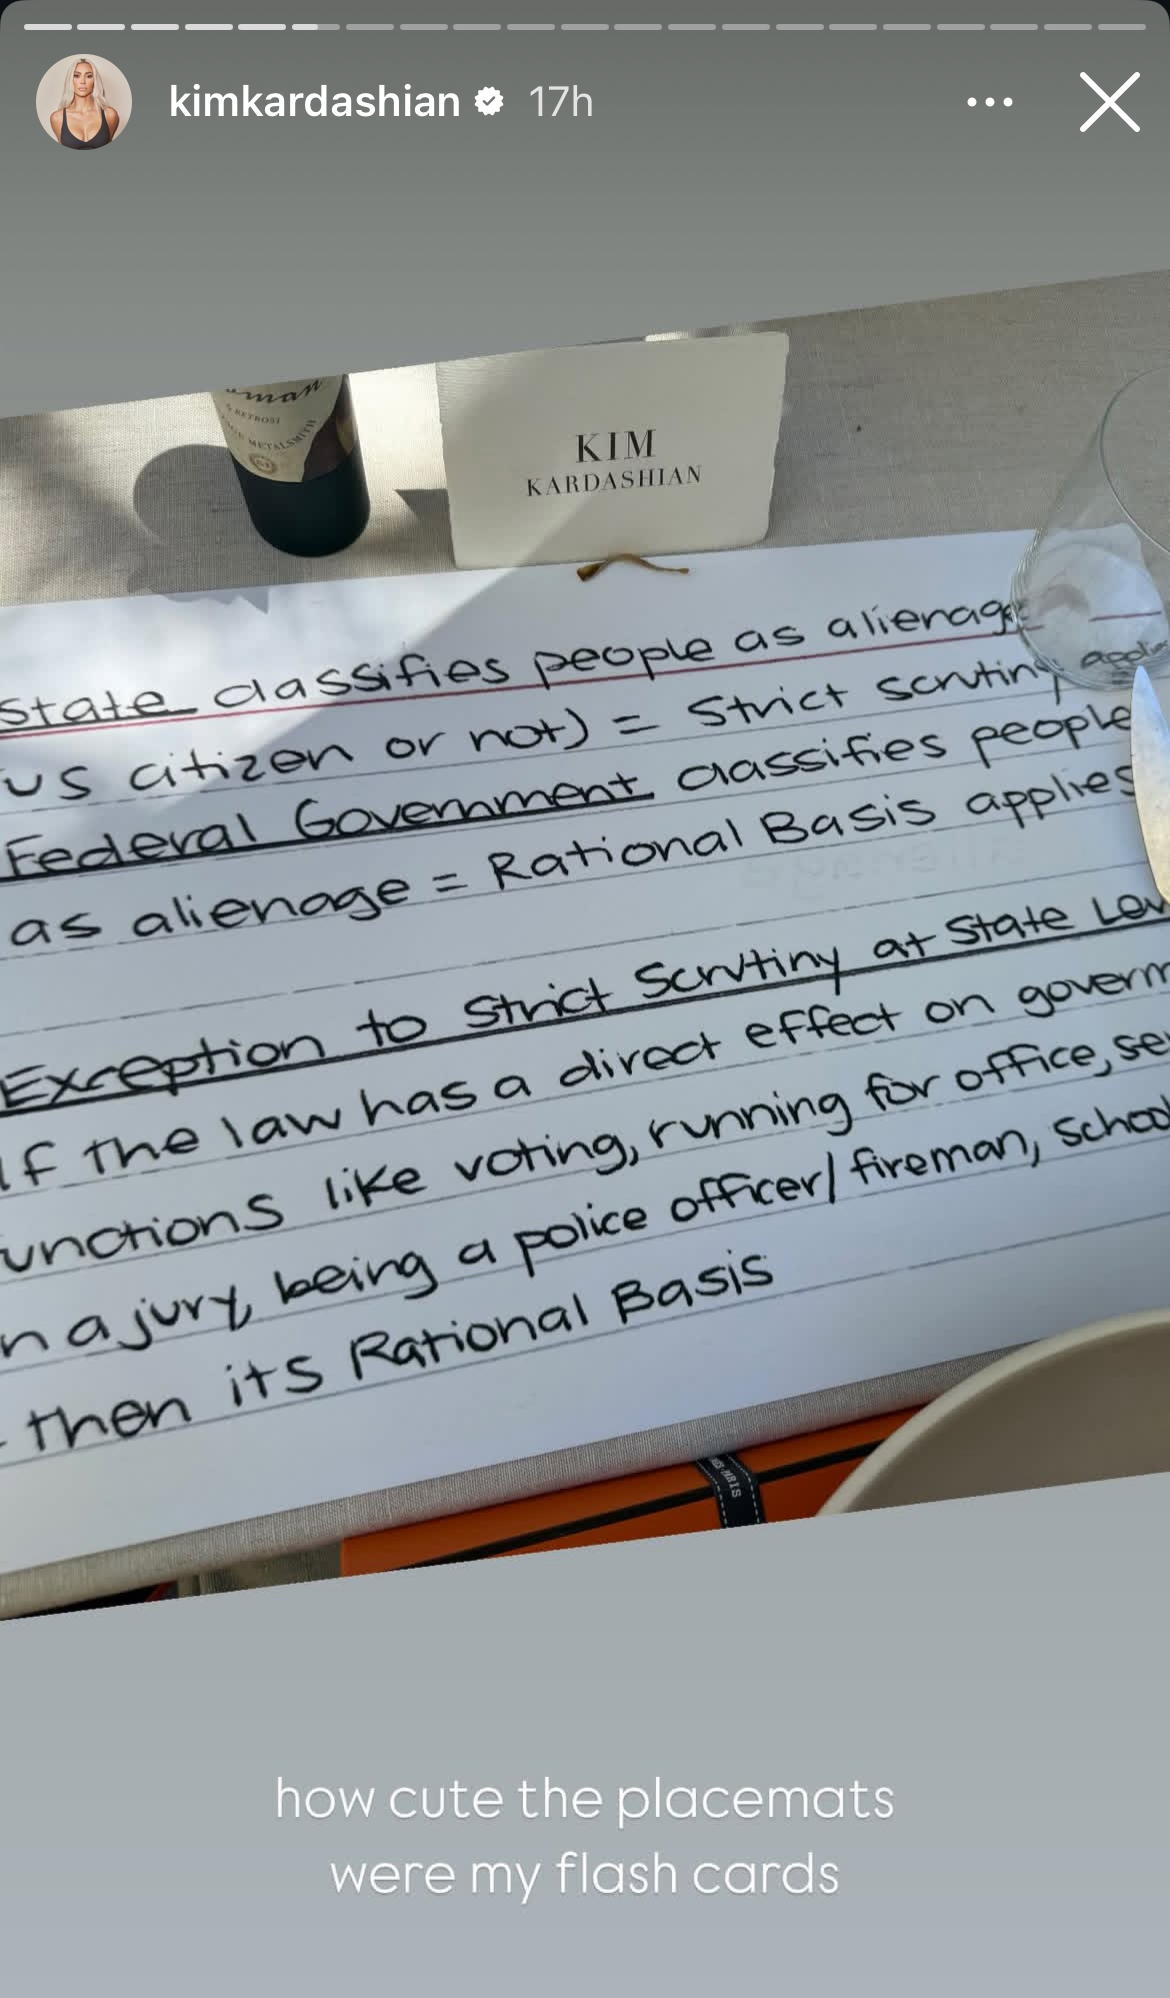 kimkardashian 17h
man
& RETROSI
METALSMITH
KIM
KARDASHIAN
State classifies people as alienage
US citizen or not) = Strict scrutiny applie
Federal Government classifies people
as alienage = Rational Basis applies
Exception to Strict Scrutiny at State Lev
If the law has a direct effect on governm
unctions like voting, running for office, se
n a jury, being a police officer/fireman, school
then its Rational Basis
how cute the placemats
were my flash cards